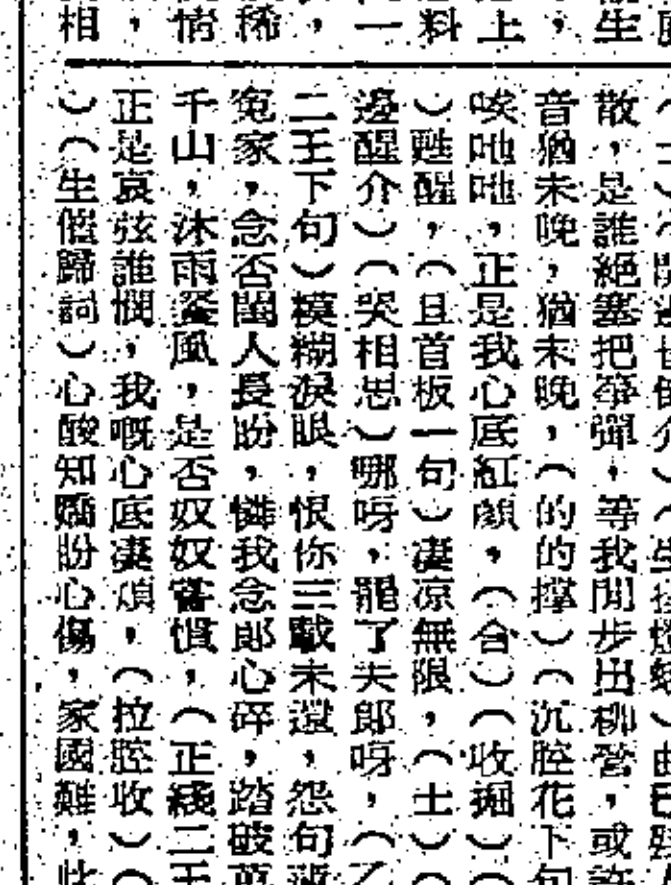 生
，
上
料
一
，
稀
情
，
相
散，是誰絕塞把箏彈，等我閒步出柳營，或許
音猶未晚，猶未晚，（的的撑）（沉腔花下句
唉吔吔，正是我心底紅顏，（合）（收掘）（
）甦醒，（旦首板一句）凄凉無限，（士）（
邊醒介）（哭相思）哪呀，罷了夫郎呀，（乙
二王下句）模糊淚眼，恨你三載未還，怨句
冤家，念否閨人長盼，憐我念郎心碎，踏破
千山，沐雨 風，是否奴奴 慣，（正綫二王
正是哀弦誰憫，我嘅心底凄煩，（拉腔收）（
）（生催歸詞）心酸知嬌盼心傷，家國難，此